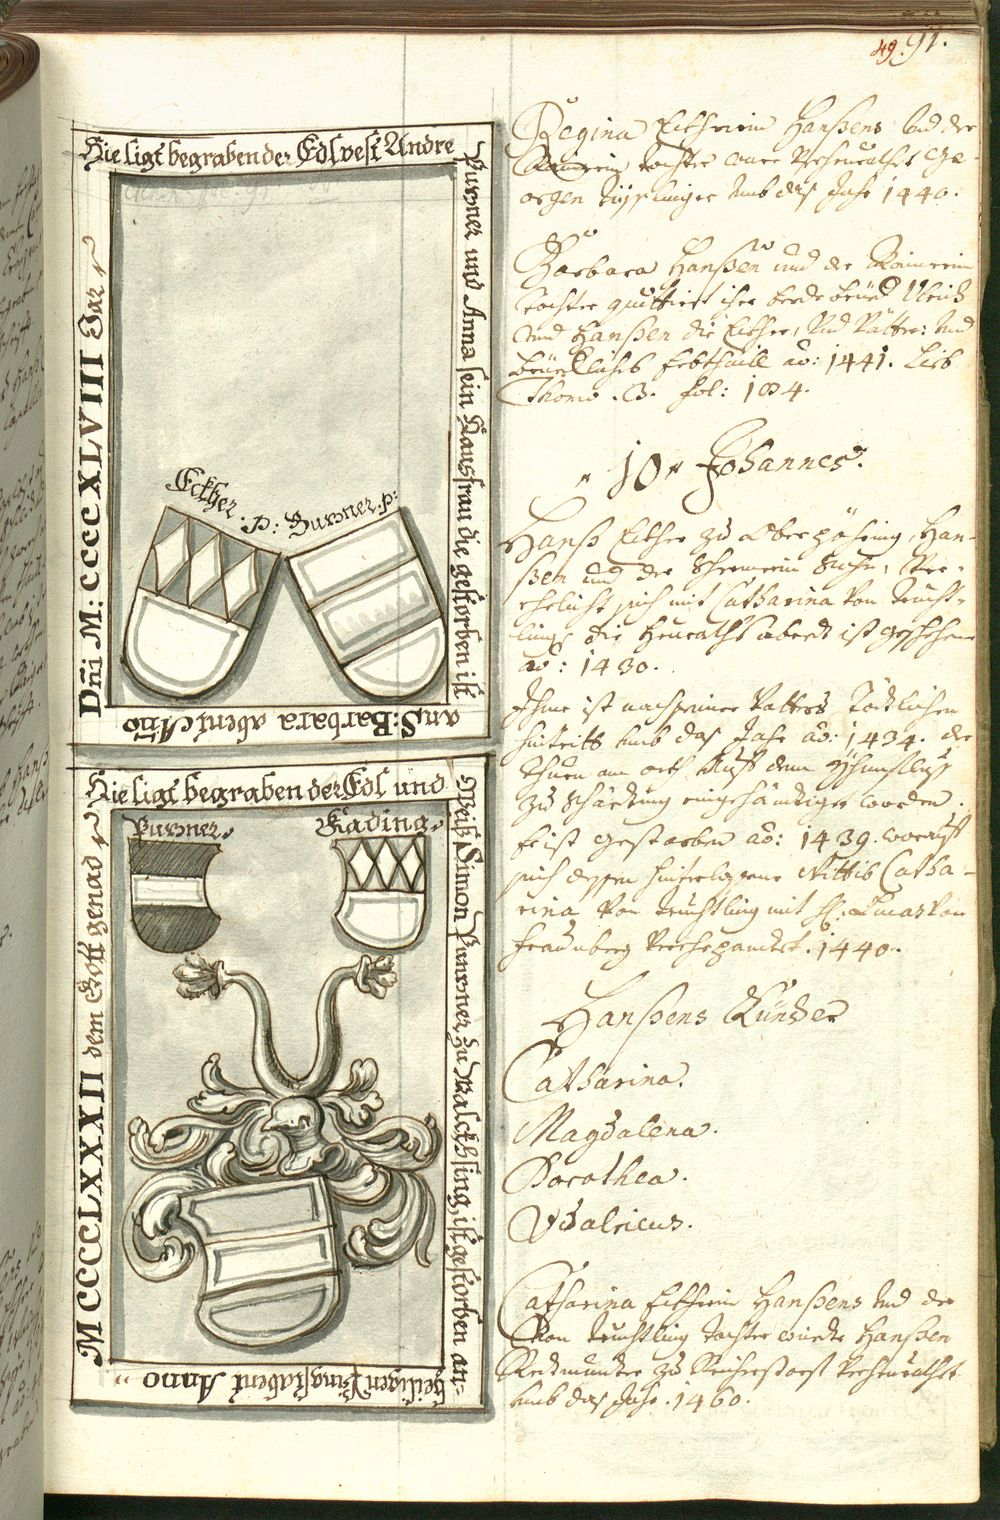 49. 91.
Hie ligt begraben der Edlvest Andre
Purner und Anna sein Hausfrau die gestorben ist
an S: Barbara abent Año
Dñi M: CCCC XLVIII Jar
Ecther. p:
Purner. p:
Hie ligt begraben der Edl und
Weiß Simon Purner zu Walckhsing, ist gestorben an-
heiligen Pfingstabent Anno
M CCCC LXXXII dem Gott genad
Purner.
Kading.
Regina Ecttherin Hanßens und der
tochter ware Verheurathet Ge-
orgen umb das Jahr 1440.
Barbara Hanßen und der Rainerin
tochter quittiert ihre bede brüed Ulrich
und Hanßen die Ecther, Vmb Vätter: und
brüederlichs Erbthaill ao: 1441. Lieb
Thomo. 3. fol: 104.
10. Johannes.
Hanß Ecther zu Oberpöhring, Han-
ßen und der Sohn, Ver-
ehelicht sich mit Catharina von trucht-
ling, die Heuraths abredt ist geschehen
ao: 1430.
Ihme ist nach seines Vatters Tödtlichen
hintritt umb das Jahr ao: 1434. der
Thurn am orth, Auf dem
zu Schärding eingehändiget worden.
Er ist gestorben ao: 1439. worauf
sich dessen hinterlassene Wittib Catha-
rina von truchtling mit H: von
fraunberg Verehe 1440.
Hanßens Künder
Catharina.
Magdalena.
Dorothea.
Vdalricus.
Catharina Ecttherin Hanßens und der
von truchtling tochter wurde Hanßen
zu Verheurathet
umb das Jahr. 1460.